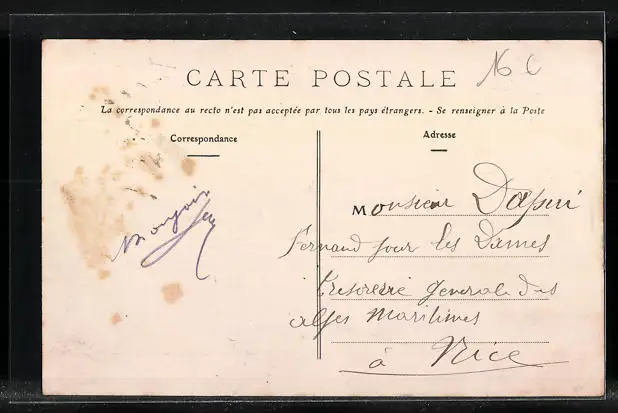 CARTE POSTALE
La correspondance au recto n'est pas acceptée par tous les pays étrangers. - Se renseigner à la Poste
Correspondance
Adresse
Monsieur
Fernand pour les Dames
Tresorerie generale des
alpes Maritimes
à Nice